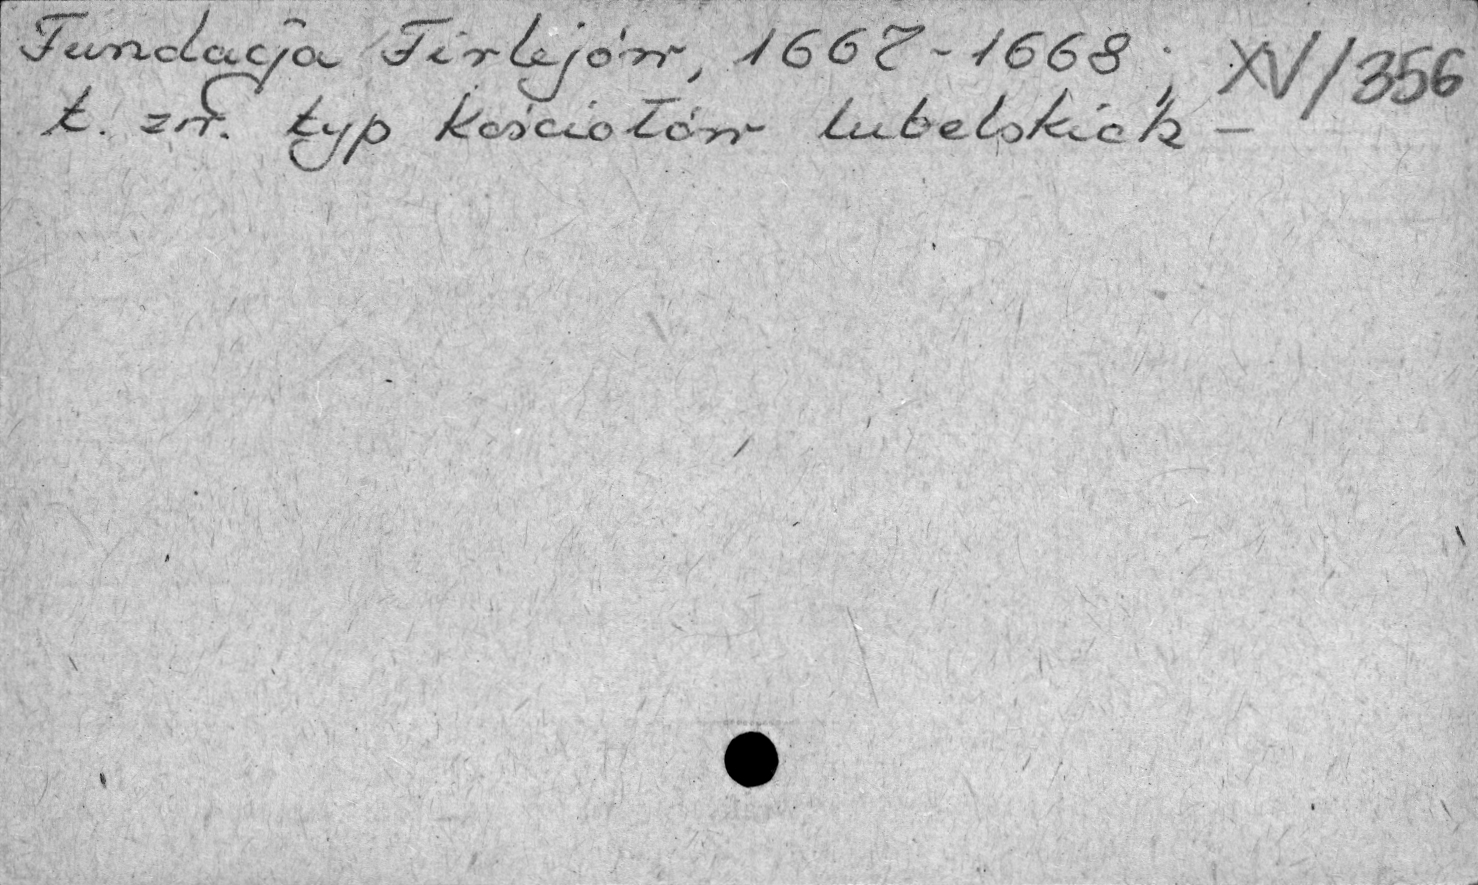 Fundacja Firlejów, 1667-1668; XV/356
t. zw. typ kościołów lubelskich -